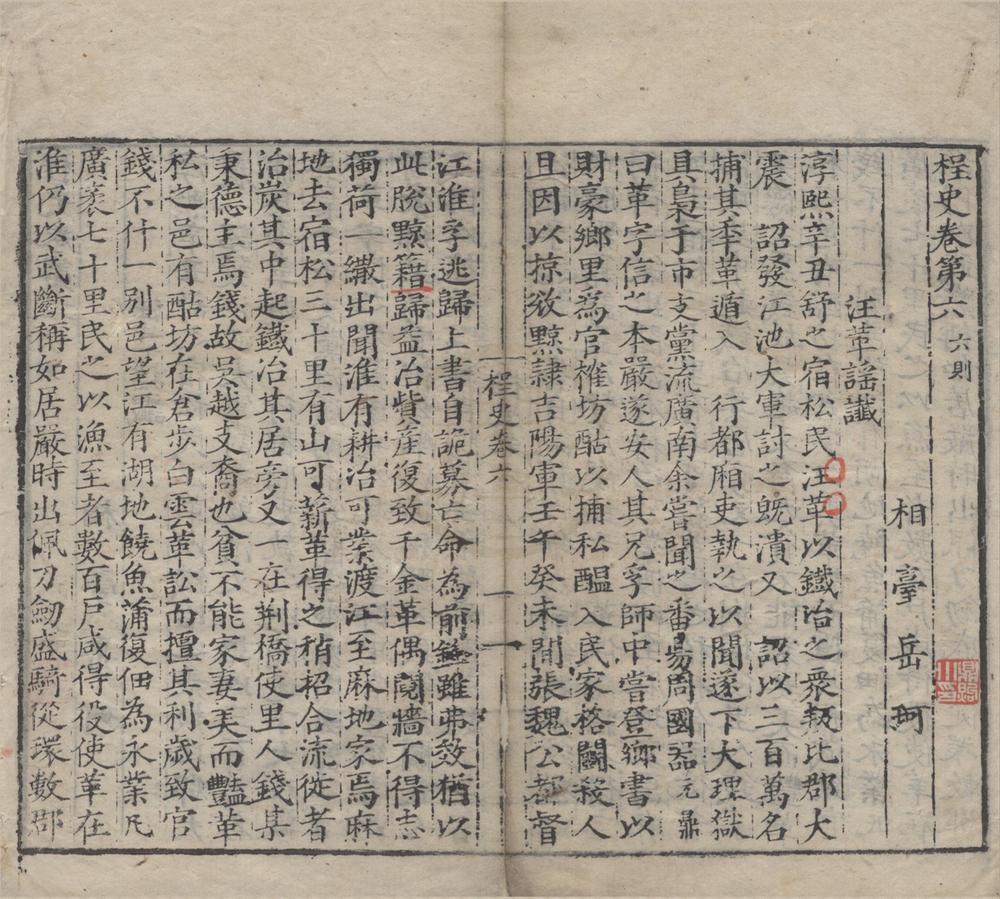 桯史卷第六 六則
相臺 岳珂
汪革謠讖
淳熙辛丑舒之宿松民汪革以鐵冶之衆叛比郡大
震 詔發江池大軍討之既潰又 詔以三百萬名
捕其季革遁入 行都廂吏執之以聞遂下大理獄
具梟于市支黨流廣南余嘗聞之番昜周國器元鼎
曰革字信之本嚴遂安人其兄孚師中嘗登鄉書以
財豪鄉里爲官榷坊酤以捕私醞入民家格鬬殺人
且因以掠敓黥隸吉陽軍壬午癸未閒張魏公都督
江淮孚逃歸上書自詭募亡命為前鋒雖弗效猶以
此脫黥籍歸益治貲產復致千金革偶鬩牆不得志
獨荷一繖出聞淮有耕冶可業渡江至麻地家焉麻
地去宿松三十里有山可薪革得之稍招合流徙者
治炭其中起鐵冶其居旁又一在荆橋使里人錢某
秉德主焉錢故吳越支裔也貧不能家妻美而豔革
私之邑有酤坊在倉步白雲革訟而擅其利歲致官
錢不什一別邑望江有湖地饒魚蒲復佃為永業凡
廣袤七十里民之以漁至者數百戶咸得役使革在
淮仍以武斷稱如居嚴時出佩刀劒盛騎從環數郡
桯史卷六
一